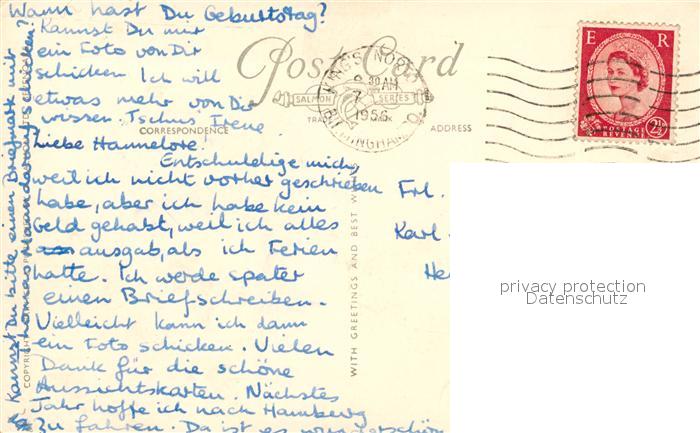 Wann hast Du Geburtstag?
Kannst Du mir
ein Foto von Dir
schicken Ich will
etwas mehr von Dir
wissen. Tschus Irene
Kannst Du bitte einen Briefmark mit
schicken?
Post Card
KINGS NORTON
30 AM
7
1956
BIRMINGHAM
SALMON SERIES
E R
POSTAGE REVENUE
2½
CORRESPONDENCE
ADDRESS
Liebe Hannelore!
Entschuldige mich,
weil ich nicht vorher geschrieben
habe, aber ich habe kein
Geld gehabt, weil ich alles
ausgab, als ich Ferien
hatte. Ich werde spater
einen Brief schreiben.
Vielleicht kann ich dann
ein Foto schicken. Vielen
Dank für die schöne
Aussichtskarten. Nächstes
Jahr hoffe ich nach Hamberg
zu fahren. Da ist es wunderschön
WITH GREETINGS AND BEST
Frl.
Karl
He
COPYRIGHT
privacy protection
Datenschutz